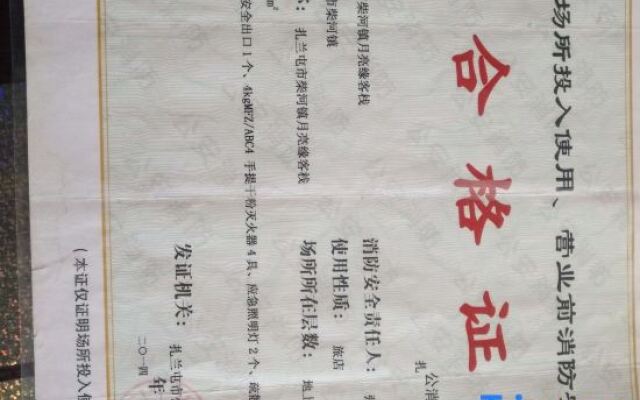 场所投入使用、营业前消防安
合格证
公消
扎
柴河镇月亮缘客栈
消防安全责任人：
市柴河镇
使用性质： 旅店
扎兰屯市柴河镇月亮缘客栈
场所所在层数： 地上
m²
安全出口1个、4kgMFZ/ABC4 手提干粉灭火器4具、应急照明灯2个、疏散
发证机关： 扎兰屯市
年
二〇一四
（本证仅证明场所投入使